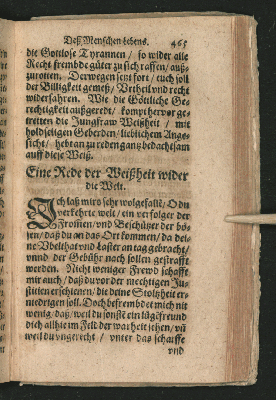 Deß Menschen lebens. 465
die Gottlose Tyrannen / so wider alle
Recht frembde güter zu sich raffen / auß-
zurotten. Derwegen seyt fort / euch soll
der Billigkeit gemeß / Vrtheil vnd recht
widerfahren. Wie die Göttliche Ge-
rechtigkeit außgeredt / kompt hervor ge-
tretten die Jungfraw Weißheit / mit
holdseligen Geberden / lieblichem Ange-
sicht / hebt an zu reden gantz bedachtsam
auff diese Weiß.
Eine Rede der Weißheit wider
die Welt.
Ich laß mir's sehr wolgefalle / O du
verkehrte welt / ein verfolger der
Frommen / vnd Beschützer der bö-
sen / daß du an das Ort kommen / da dei-
ne Vbelthat vnd laster an tag gebracht /
vnnd der Gebühr nach sollen gestrafft
werden. Nicht weniger Frewd schafft
mir auch / daß du vor der mechtigen Ju-
stitien erschienen / die deine Stoltzheit er-
niedrigen soll. Doch befrembdet mich nit
wenig / daß / weil du sonst ein lügēfreund
dich allhie im Feld der warheit sehen / vñ
weil du vngerecht / vnter das schaffe
vnd